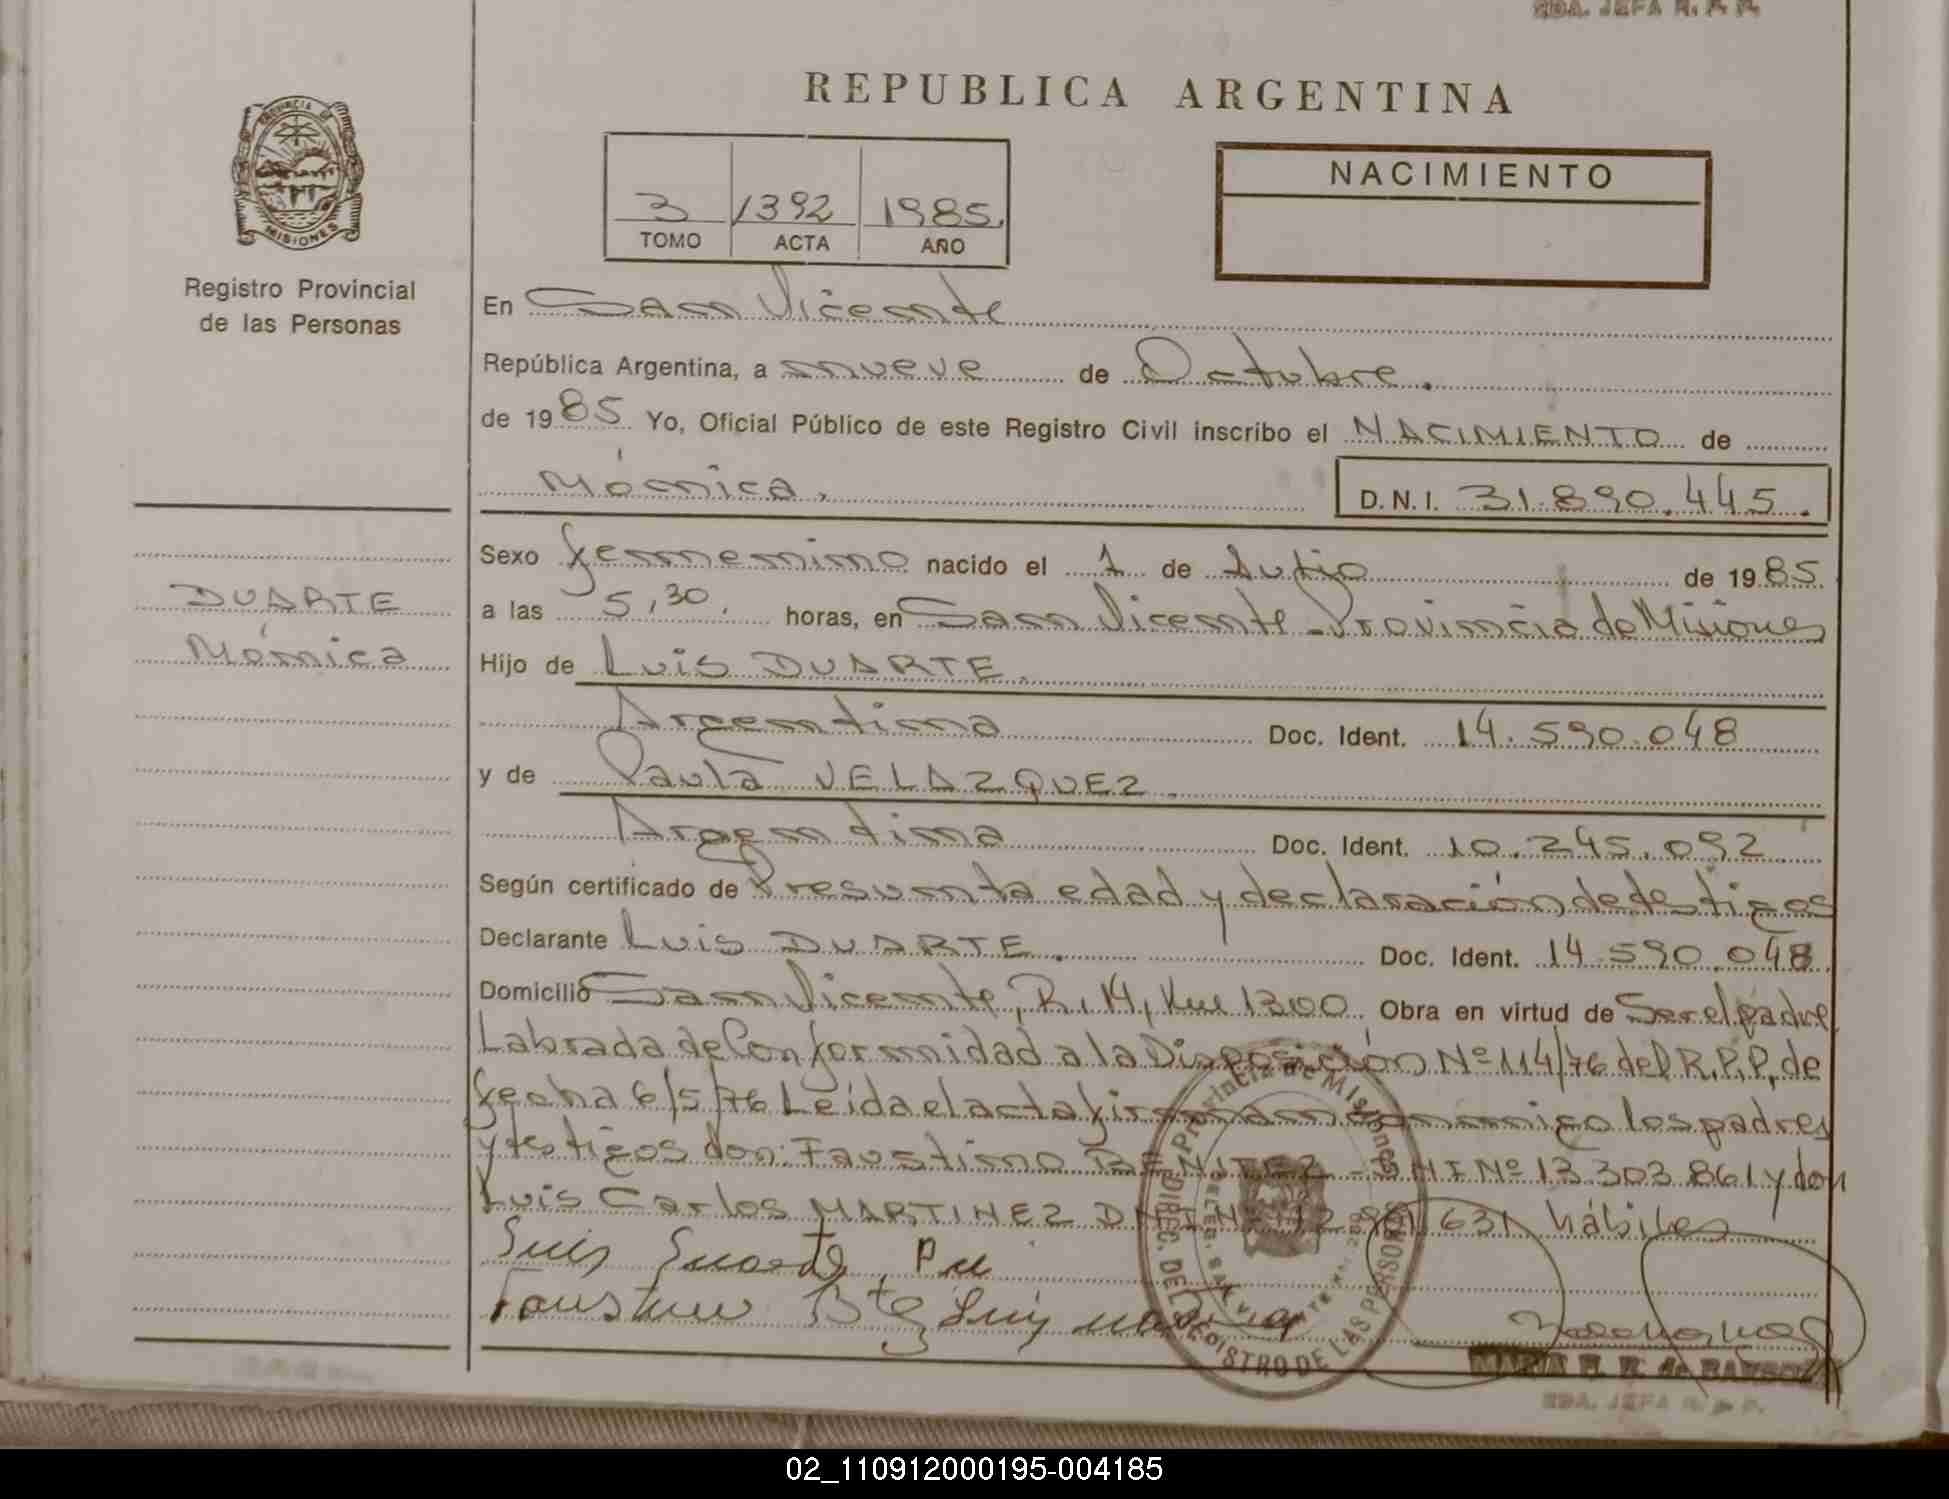 EDA. JEFA R. P. P.
REPUBLICA ARGENTINA
PROVINCIA DE
MISIONES
Registro Provincial
de las Personas
3 1392 1985.
TOMO ACTA AÑO
NACIMIENTO
En San Vicente
República Argentina, a nueve de Octubre.
de 1985 Yo, Oficial Público de este Registro Civil inscribo el NACIMIENTO de
Mónica.
D.N.I. 31.890.445.
DUARTE
Mónica
Sexo femenino nacido el 1 de Julio de 1985
a las 5,30. horas, en San Vicente-Provincia de Misiones
Hijo de Luis DUARTE.
Argentina Doc. Ident. 14.590.048
y de Paula VELAZQUEZ.
Argentina Doc. Ident. 10.245.092
Según certificado de Presunta edad y declaración de testigos
Declarante Luis DUARTE. Doc. Ident. 14.590.048
Domicilio San Vicente, R.14, Km 1300. Obra en virtud de Ser el padre.
Labrada de Conformidad a la Disposición Nº 114/76 del R.P.P. de
fecha 6/5/76 Leída el acta firman conmigo los padres
y testigos don: Faustino BENITEZ - DNI Nº 13.303.861 y don
Luis Carlos MARTINEZ DNI Nº 12. 631 hábiles
Luis Duarte
Provincia de Misiones
DIREC. DEL REGISTRO DE LAS PERSONAS
MARIA R. R. de
EDA. JEFA R. P. P.
02_110912000195-004185